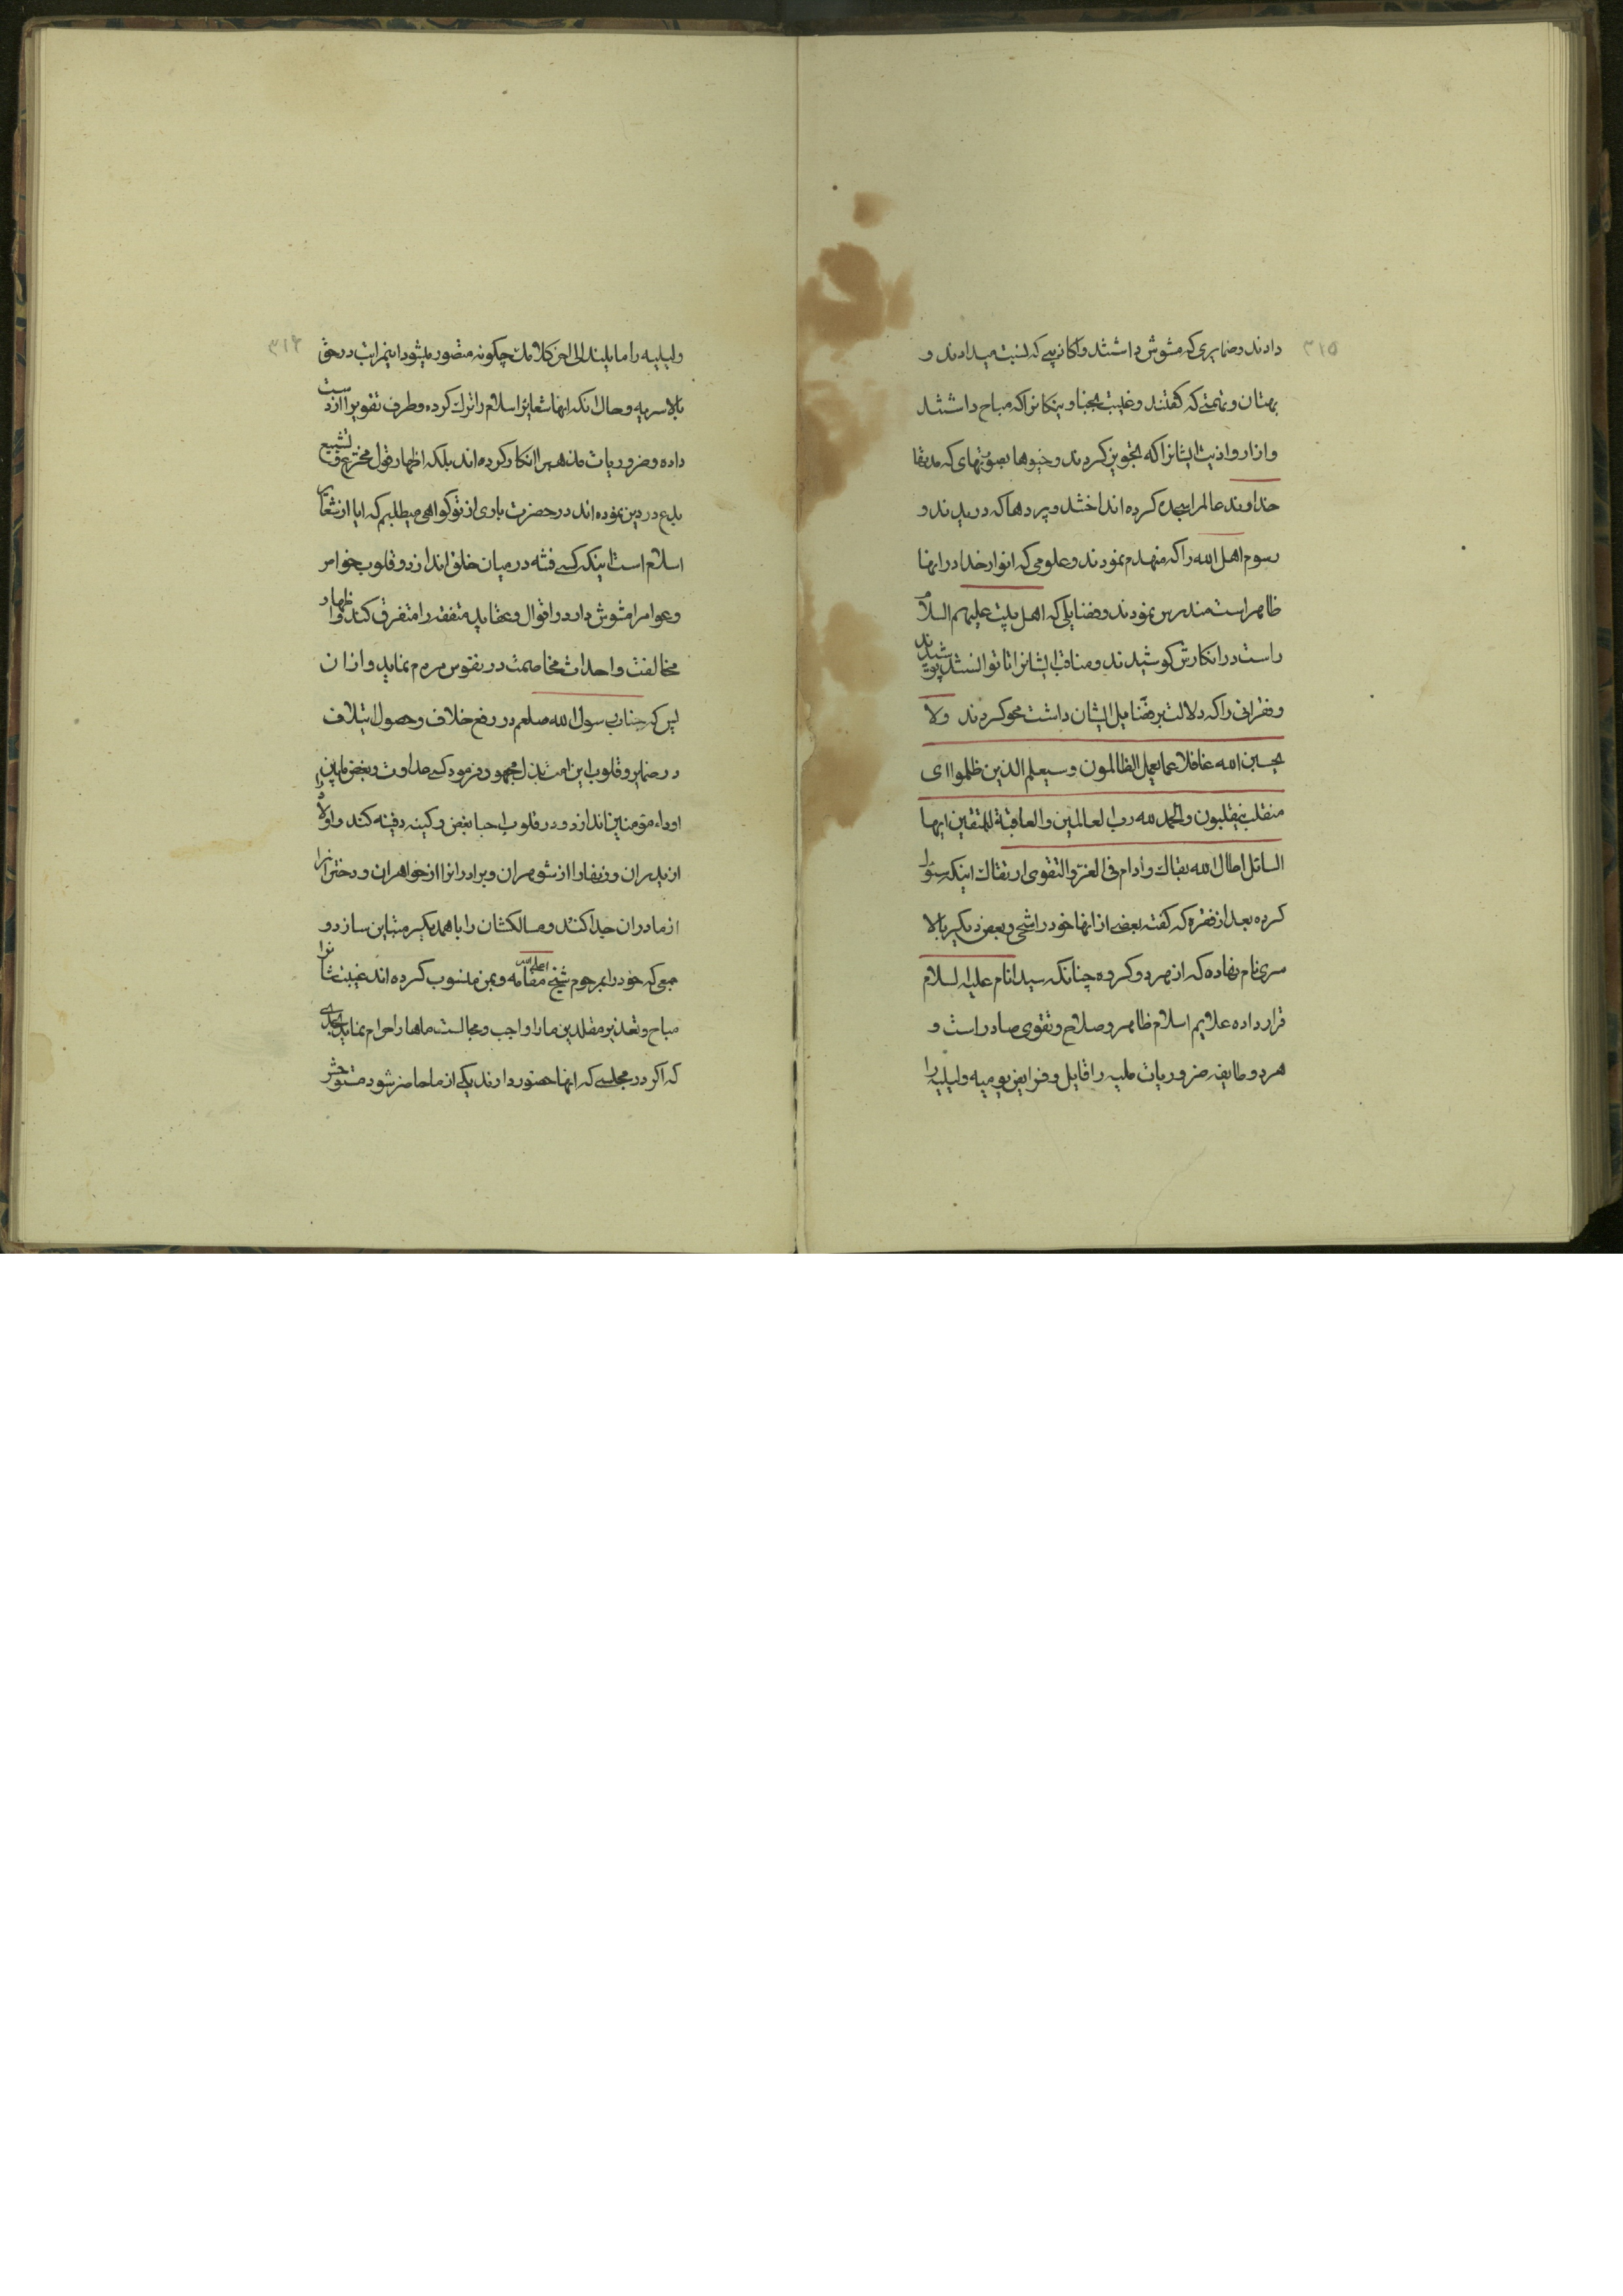 ۳۱۵
دادند و ضمایری که مشوش داشتند و اکاذیبی که نسبت میدادند و
بهتان و تهمتی که گفتند و غیبت نجبا و نیکانرا که مباح داشتند
و ازار و اذیت ایشانرا که تجویز کردند و خیوها بصورتهای که
خداوند عالم را سجده کرده انداختند و پردها که دریدند و
رسوم اهل الله را که منهدم نمودند و علومی که انوار خدا در انها
ظاهر است مندرس نمودند و فضایلی که اهل بیت علیهم السلام
راست در انکارش کوشیدند و مناقب ایشانرا تا توانستند پوشیدند
و فقراتی را که دلالت بر فضایل ایشان داشت محو کردند ولا
تحسبن الله غافلا عما یعمل الظالمون و سیعلم الذین ظلموا ای
منقلب ینقلبون والحمد لله رب العالمین والعاقبة للمتقین ایها
السائل اطال الله بقاك و ادام فی العز والتقوی ارتقاك اینکه سئوال
کرده بعد از فقره که گفته بعضی از انها خود را شیخی و بعض دیگر بالا
سری نام نهاده که از هر دو گروه چنانکه سید انام علیه السلام
قرار داده علایم اسلام ظاهر و صلاح و تقوی صادر است و
هر دو طایفه ضروریات ملیه را قایل و فرایض یومیه و لیلیه را
۳۱۶
ولیلیه را مایلند الی اخر کلامك چگونه متصور میشود اینمراتب در حق
بالاسریه و حال انکه انها شعایر اسلام را ترك کرده و طرف تقوی را از دست
داده و ضروریات مذهب را انکار کرده اند بلکه اظهار قول مخترع و تشیع
بدع در دین نموده اند در حضرت باری از تو گواهی میطلبم که ایا از شعائر
اسلام است اینکه کسی فتنه در میان خلق اندازد و قلوب خواص
و عوام را مشوش دارد و اقوال و عقاید متفقه را متفرق کند و اظهار
مخالفت و احداث مخاصمت در نفوس مردم نماید و از ان
پس که جناب رسول الله صلعم در رفع خلاف و حصول ایتلاف
در ضمایر و قلوب این امت بذل مجهود فرمود کسی عداوت و بغض مابین
اوداء مؤمنین اندازد و در قلوب احبا بغض و کینه دفینه کند و اولاد را
از پدران و زنها را از شوهران و برادرانرا از خواهران و دخترانرا
از مادران جدا کند و مسالکشان را با همدیگر متباین سازد و
جمعی که خود را بمرحوم شیخ اعلی الله مقامه و بمن منسوب کرده اند غیبتشانرا
مباح و تعذیر مقلدین ما را واجب و مجالست ماها را حرام نماید بحدی
که اگر در مجلسی که انها حضور دارند یکی از ما حاضر شود متوحش